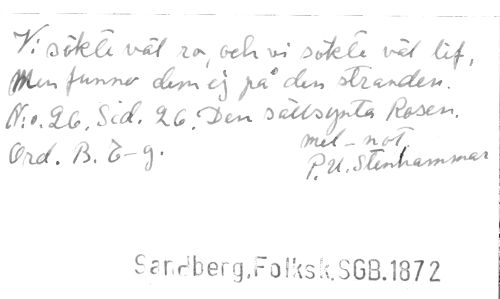 Vi sökte väl ro, och vi sökte väl lif,
Men funno dem ej på den stranden.
N:o. 26. Sid. 26. Den sällsynta Rosen.
mel-not.
Ord. B. E-g.
P.U. Stenhammar
Sandberg.Folksk.SGB.1872